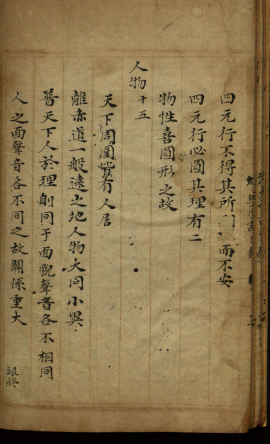 四元行不得其所 而不安
四元行必圓其理有二
物性喜圓形之故
人物十五
天下周圍皆有人居
離赤道一般遠之地人物大同小異
普天下人於理則同于面觀聲音各不相同
人之面聲音各不同之故關係重大
銀終